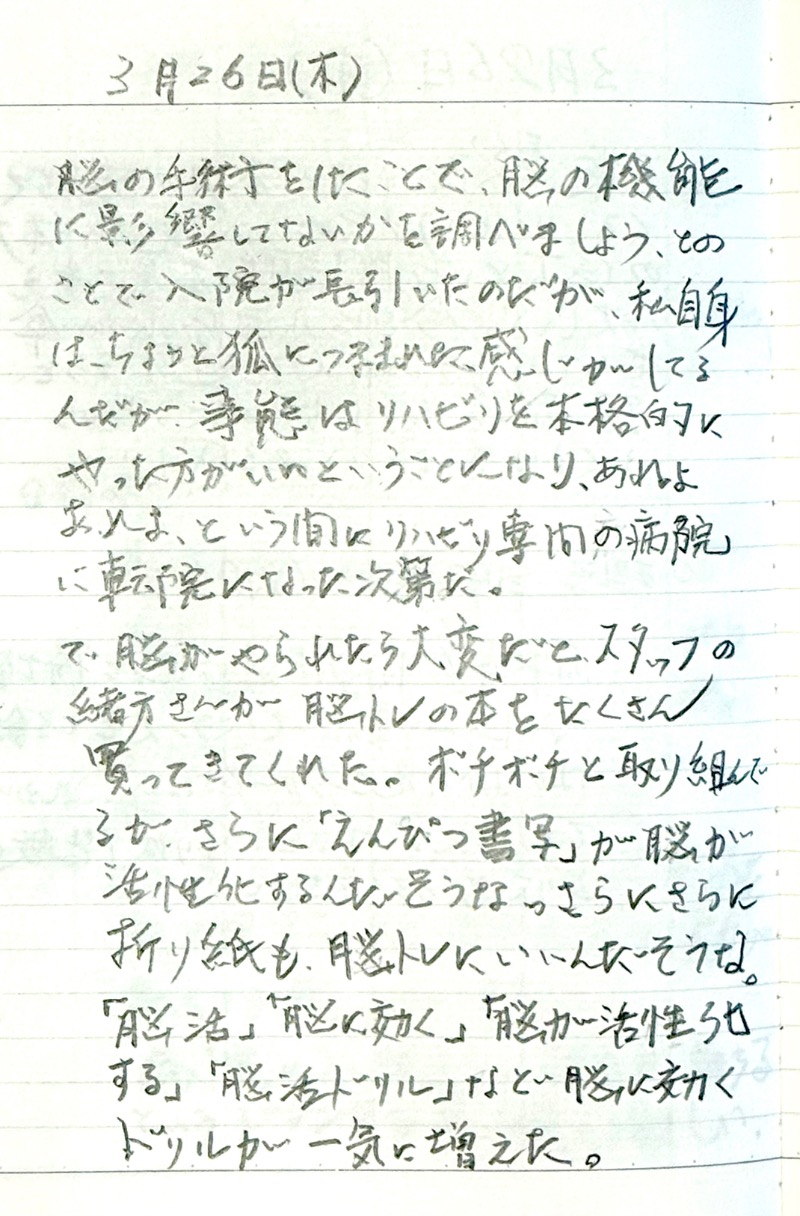 3月26日(木)
脳の手術をしたことで、脳の機能
に影響してないかを調べましょう、との
ことで入院が長引いたのだが、私自身
は、ちょっと狐につままれた感じがしてる
んだが、事態はリハビリを本格的に
やった方がいいということになり、あれよ
あれよ、という間にリハビリ専門の病院
に転院になった次第だ。
で、脳がやられたら大変だと、スタッフの
緒方さんが脳トレの本をたくさん
買ってきてくれた。ボチボチと取り組んで
るが、さらに「えんぴつ書写」が脳が
活性化するんだそうな。さらにさらに
折り紙も、脳トレにいいんだそうな。
「脳活」「脳に効く」「脳が活性化
する」「脳活ドリル」など脳に効く
ドリルが一気に増えた。